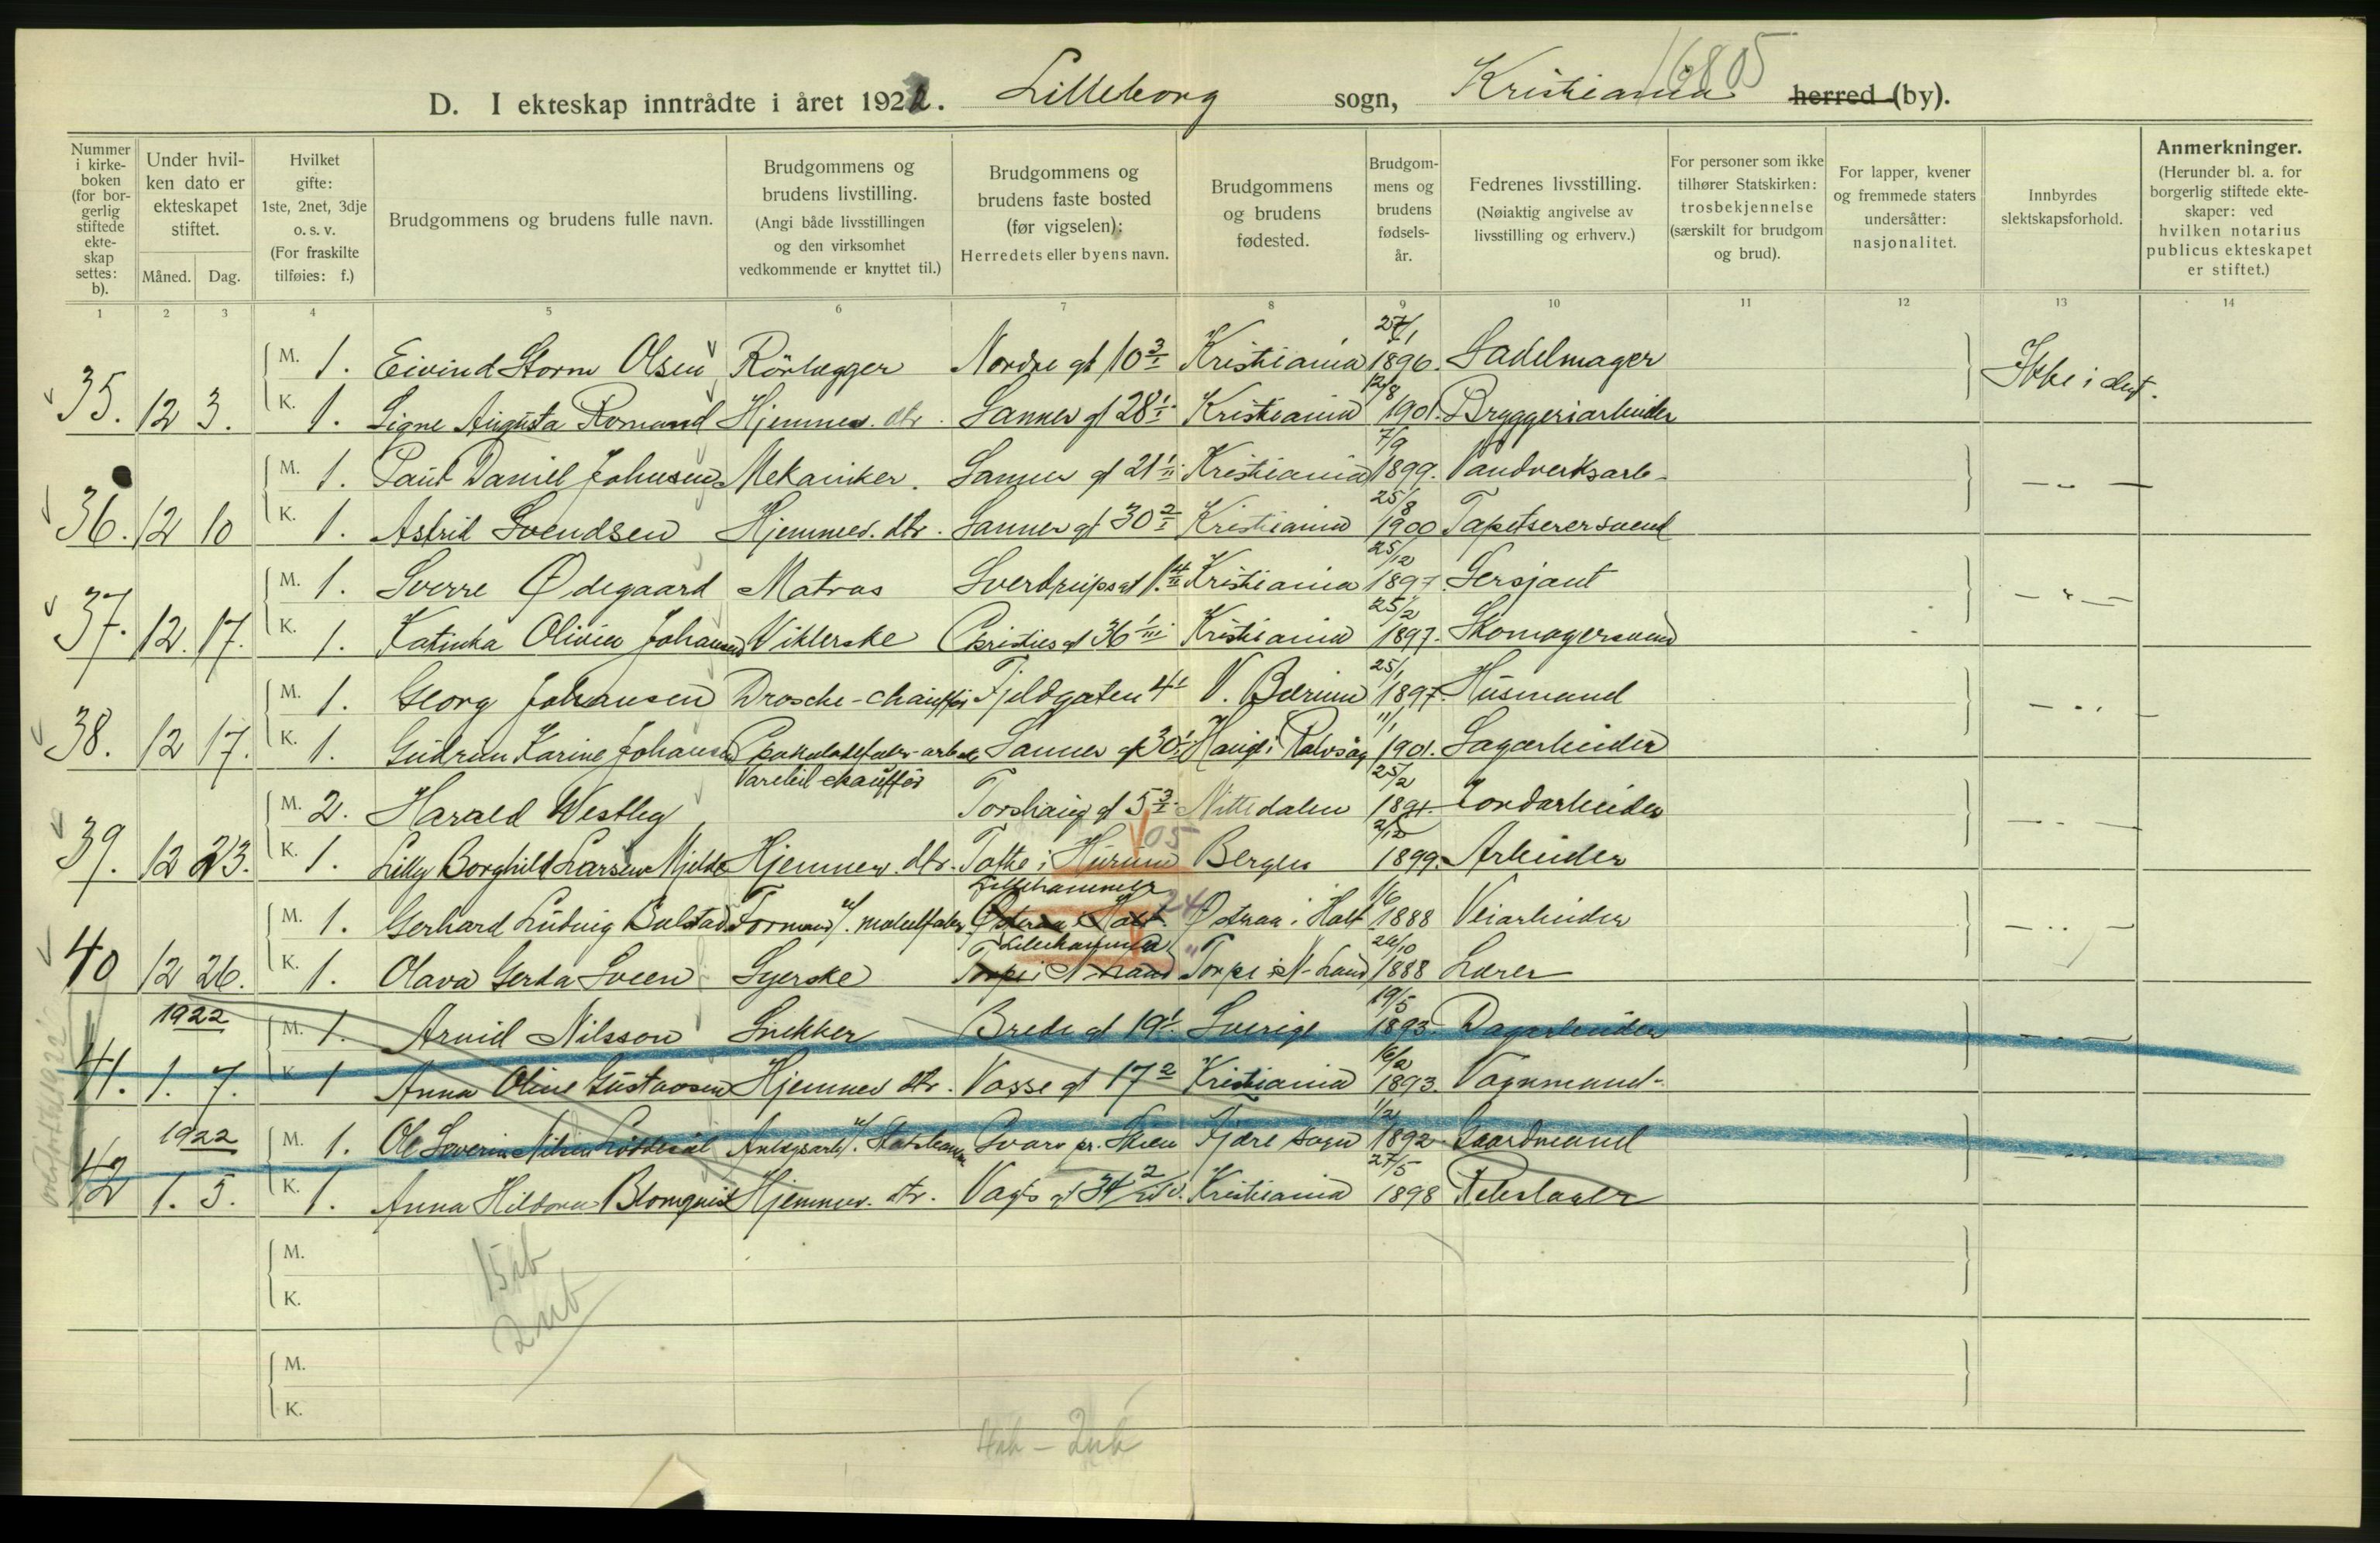 16805
D. I ekteskap inntrådte i året 1922. Lilleborg sogn, Kristiania herred (by).
Nummer i kirkeboken (for borgerlig stiftede ekteskap settes: b).
Under hvilken dato er ekteskapet stiftet.
Måned. Dag.
Hvilket gifte: 1ste, 2net, 3dje o. s. v. (For fraskilte tilføies: f.)
Brudgommens og brudens fulle navn.
Brudgommens og brudens livstilling. (Angi både livsstillingen og den virksomhet vedkommende er knyttet til.)
Brudgommens og brudens faste bosted (før vigselen): Herredets eller byens navn.
Brudgommens og brudens fødested.
Brudgommens og brudens fødselsår.
Fedrenes livsstilling. (Nøiaktig angivelse av livsstilling og erhverv.)
For personer som ikke tilhører Statskirken: trosbekjennelse (særskilt for brudgom og brud).
For lapper, kvener og fremmede staters undersåtter: nasjonalitet.
Innbyrdes slektskapsforhold.
Anmerkninger. (Herunder bl. a. for borgerlig stiftede ekteskaper: ved hvilken notarius publicus ekteskapet er stiftet.)
1 2 3 4 5 6 7 8 9 10 11 12 13 14
M. 1. Eivind Storm Olsen Rörlægger Nordre gt 10 3/I Kristiania 27/1 1896. Sadelmager
35. 12 3. K. 1. Signe Augusta Romund Hjemmev. dtr. Sanner gt 28 1/I Kristiania 12/8 1901. Bryggeriarbeider Ikke i slegt.
M. 1. Paul Daniel Johnsen Mekaniker. Sanner gt 21 1/II Kristiania 7/9 1899. Vandverksarb.
36. 12 10 K. 1. Astrid Svendsen Hjemmev. dtr. Sanner gt 30 2/I Kristiania 25/8 1900 Tapetserersvend — " —
M. 1. Sverre Ødegaard Matros Sverdrupsgt 1. 4/II Kristiania 25/12 1897. Sersjant
37. 12. 17. K. 1. Katinka Olivia Johansen Viklerske Christies gt 36 1/III Kristiania 25/2 1897. Skomagersvend — " —
M. 1. Georg Johansen Drosche-chauffør Fjeldgaten 4 1 V. Bærum 25/1 1897. Husmand
38. 12 17. K. 1. Gudrun Karine Johansen Sanner gt 30 1 11/1 1901. Sagarbeider — " —
M. 2. Harald Westley Varebil chauffør Torshaug gt 5 3/I Nittedalen 25/2 1894. Jordarbeider
05
39. 12 23. K. 1. Lilly Borghild Larsen Mjelde Hjemmev. dtr. Tofte i Hurum Bergen 2/12 1899. Arbeider — " —
Lillehammer 24
M. 1. Gerhard Ludvig Bulstad Østeraa i Holt Østeraa i Holt 1/6 1888 Veiarbeider
Lillehammer
40 12 26. K. 1. Olava Gerda Sveen Syerske Torpe i N. Land Torpe i N-Land 26/10 1888 Lærer — " —
1922
M. 1. Arvid Nilsson Snekker Brede gt 19 1 Sverige 19/5 1893. Dagarbeider
41. 1. 7. K. 1 Anna Oline Gustavsen Hjemmev dtr. Vosse gt 17 2 Kristiania 16/2 1893. Vognmand — " —
1922
M. 1. Ole Severin Nilsen Gvarv pr. Skien Fjære sogn 1/2 1892 Gaardmand
42 1. 5. K. 1. Anna Hildora Blomqvist Hjemmev. dtr. Vogts gt 34 2 Kristiania 27/5 1898 — " —
overført til 1922
M.
K.
15 ib
2 ub
M.
K.
4 ub – 2 ub